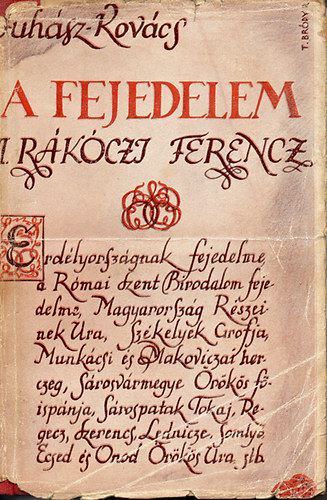 Juhász-Kovács
T. BRÓDY
A FEJEDELEM
II. RÁKÓCZI FERENCZ
Erdélyországnak fejedelme,
a Római Szent Birodalom feje-
delme, Magyarország Részei-
nek Ura, Székelyek Grófja,
Munkácsi és Makoviczai her-
czeg, Sárosvármegye Örökös fő-
ispánja, Sárospatak, Tokaj, Re-
gecz, Szerencs, Lednicze, Somlyó
Ecsed és Onod Örökös Ura, stb.